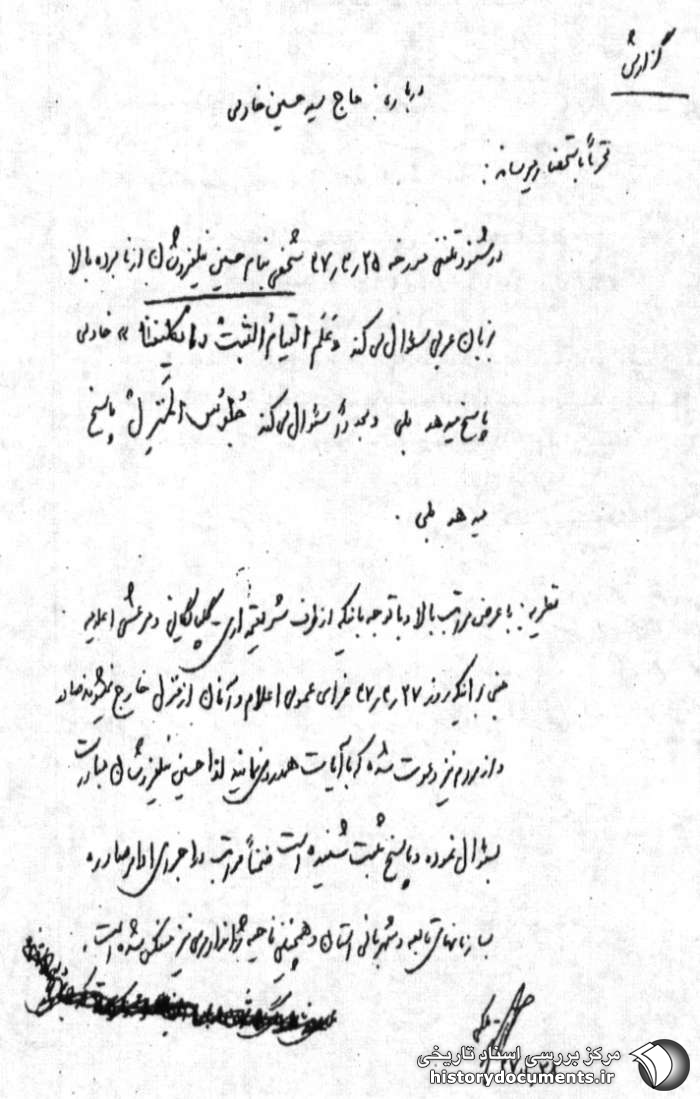 گزارش
درباره: حاج سید حسین خادمی
محترماً باستحضار میرساند:
در شنود تلفنی مورخه ۲۵ر۲ر۳۷ شخصی بنام حسینی از نامبرده بالا
بزبان عربی سئوال می کند وَعَلَم القیام الثبت » خادمی
پاسخ میدهد بلی و مجدداً سئوال می کند جُلوُس المَنزِل پاسخ
میدهد بلی .
نظریه: با عرض مراتب بالا و با توجه باینکه از طرف شریعتمداری - گلپایگانی و مرعشی اعلامیه
مبنی بر اینکه روز ۲۷ر۲ر۳۷ عزای عمومی اعلام و آنان از منزل خارج نمیشوند صادر
و از مردم نیز دعوت شده که با آیات همدردی نمایند لذا حسینی مبادرت
بسئوال نموده و پاسخ مثبت شنیده است ضمناً مراتب در اجرای اوامر صادره
بسازمانهای تابعه و شهربانی استان و همچنین ناحیه ژاندارمری نیز منعکس شده است.
مرکز بررسی اسناد تاریخی
historydocuments.ir